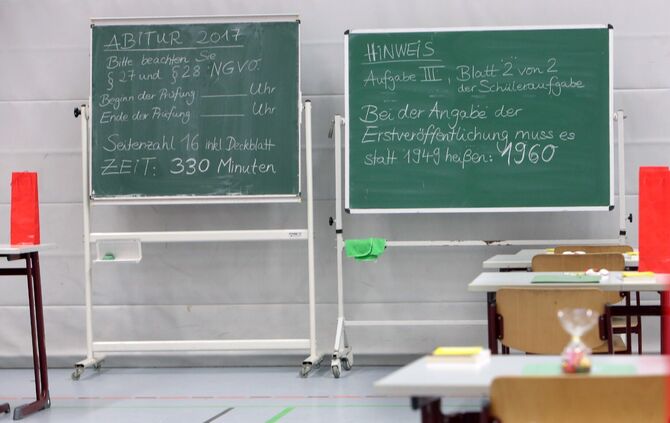 ABITUR 2017
Bitte beachten Sie
§ 27 und § 28 NGVO.
Beginn der Prüfung ____ Uhr
Ende der Prüfung ____ Uhr
Seitenzahl 16 inkl Deckblatt
ZEIT: 330 Minuten
HINWEIS
Aufgabe III, Blatt "2" von 2
der Schüleraufgabe
Bei der Angabe der
Erstveröffentlichung muss es
statt 1949 heißen: 1960